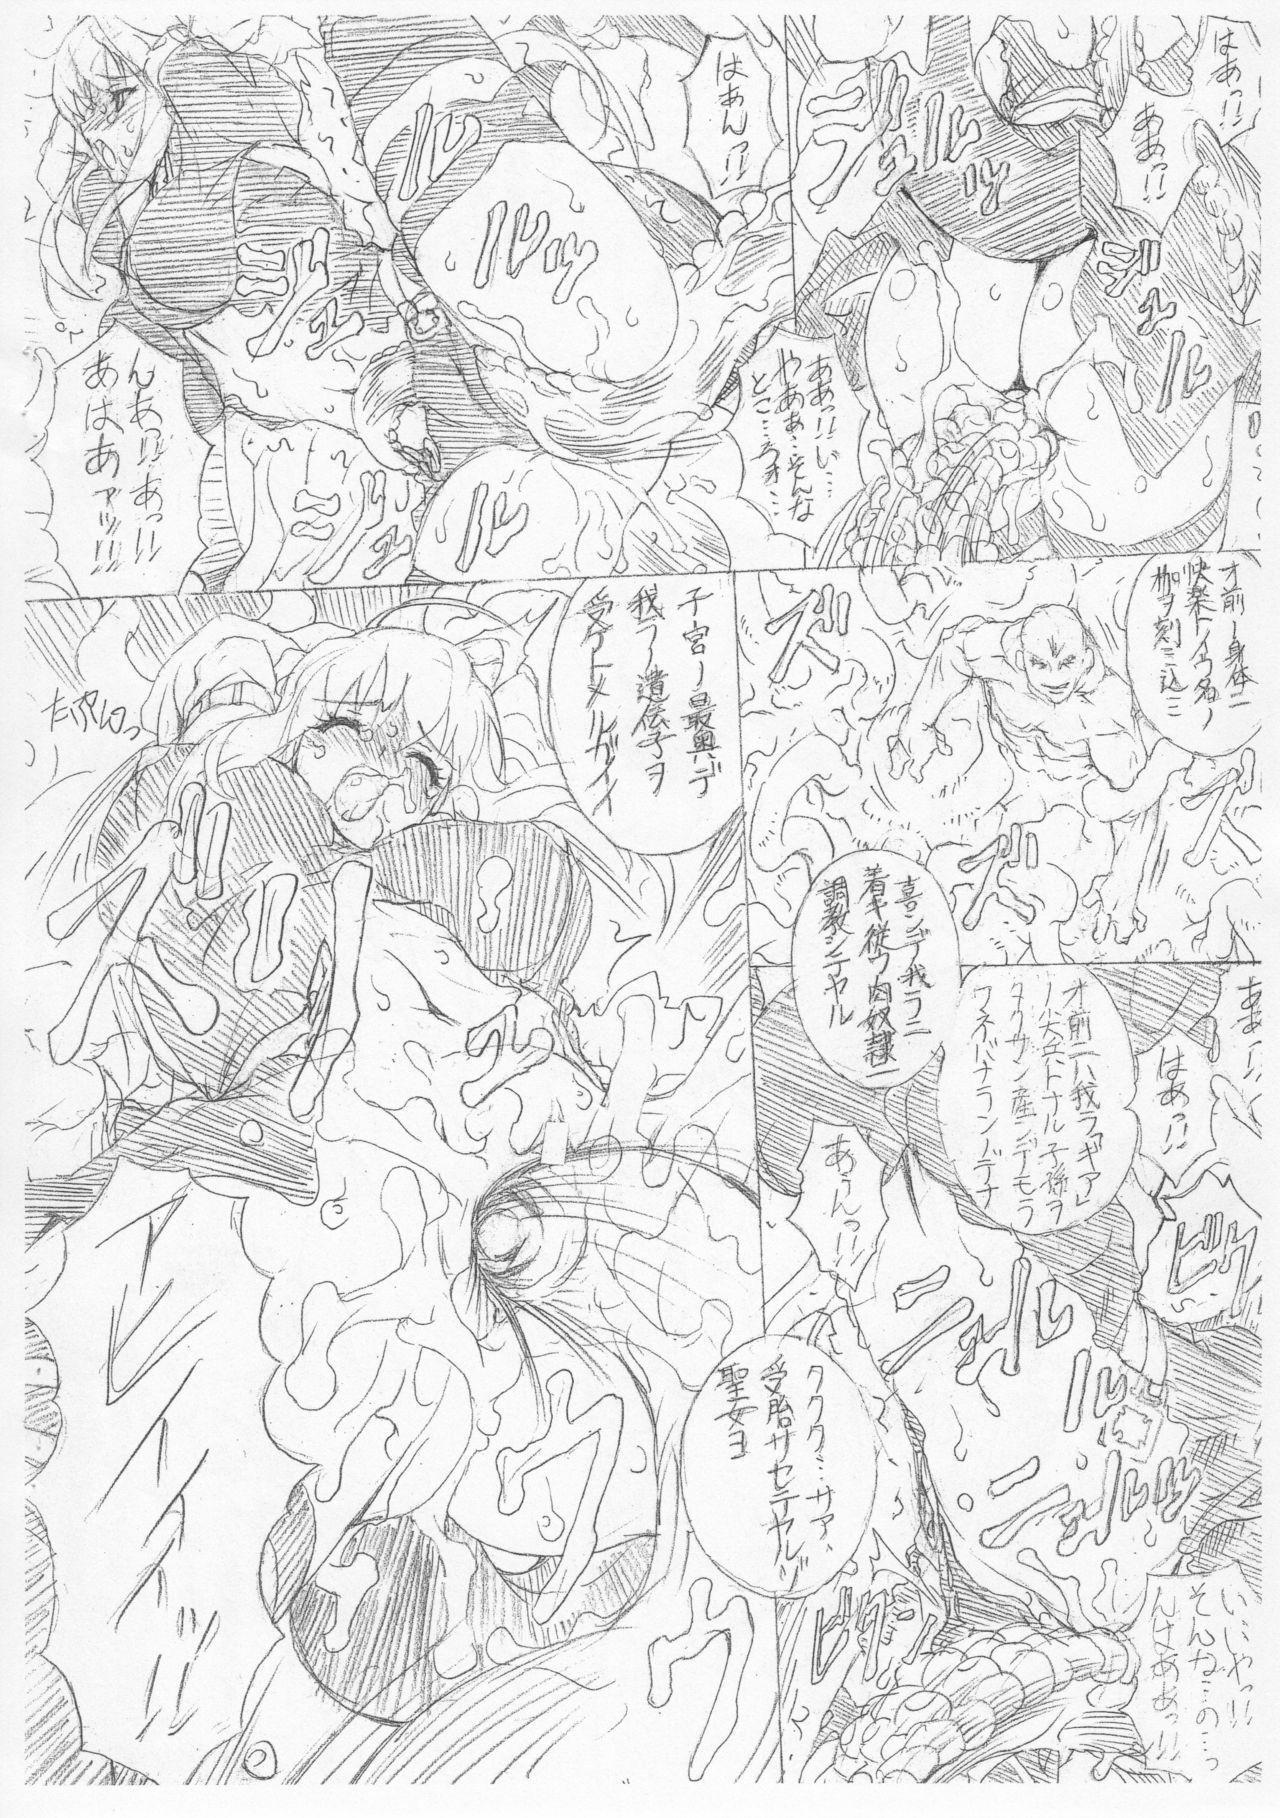 はあっ!!
ああっ!!
ジュルルッ
デュルル
ああっ!!い…
やあぁ…そんな
とこ…ろォ…
はあんっ!!
ルルッ
ルル
ミチュ
ニジュ
んあっ!!あっ!!
あはあァッ!!!
オ前ノ身体ニ
快楽トイウ名ノ
枷ヲ刻ミ込ミ
ズ
ズ
ズ
喜ンデ我ラニ
着キ従ウ肉奴隷ニ
調教シテヤル
オ前ニハ我ラ「ギア」
ノ尖兵トナル子孫ヲ
タクサン産ンデモラ
ワネバナランノデナ
はあっ!!
あぅんっ!!
ビク
ニュルル
ニュルルッ
い、いやっ!!
そんな…の…っ
んはああっ!!
ビクン
子宮ノ最奥デ
我ラノ遺伝子ヲ
受ケトメルガイイ
ククク…サア、
受胎サセテヤルゾ
聖女ヨ